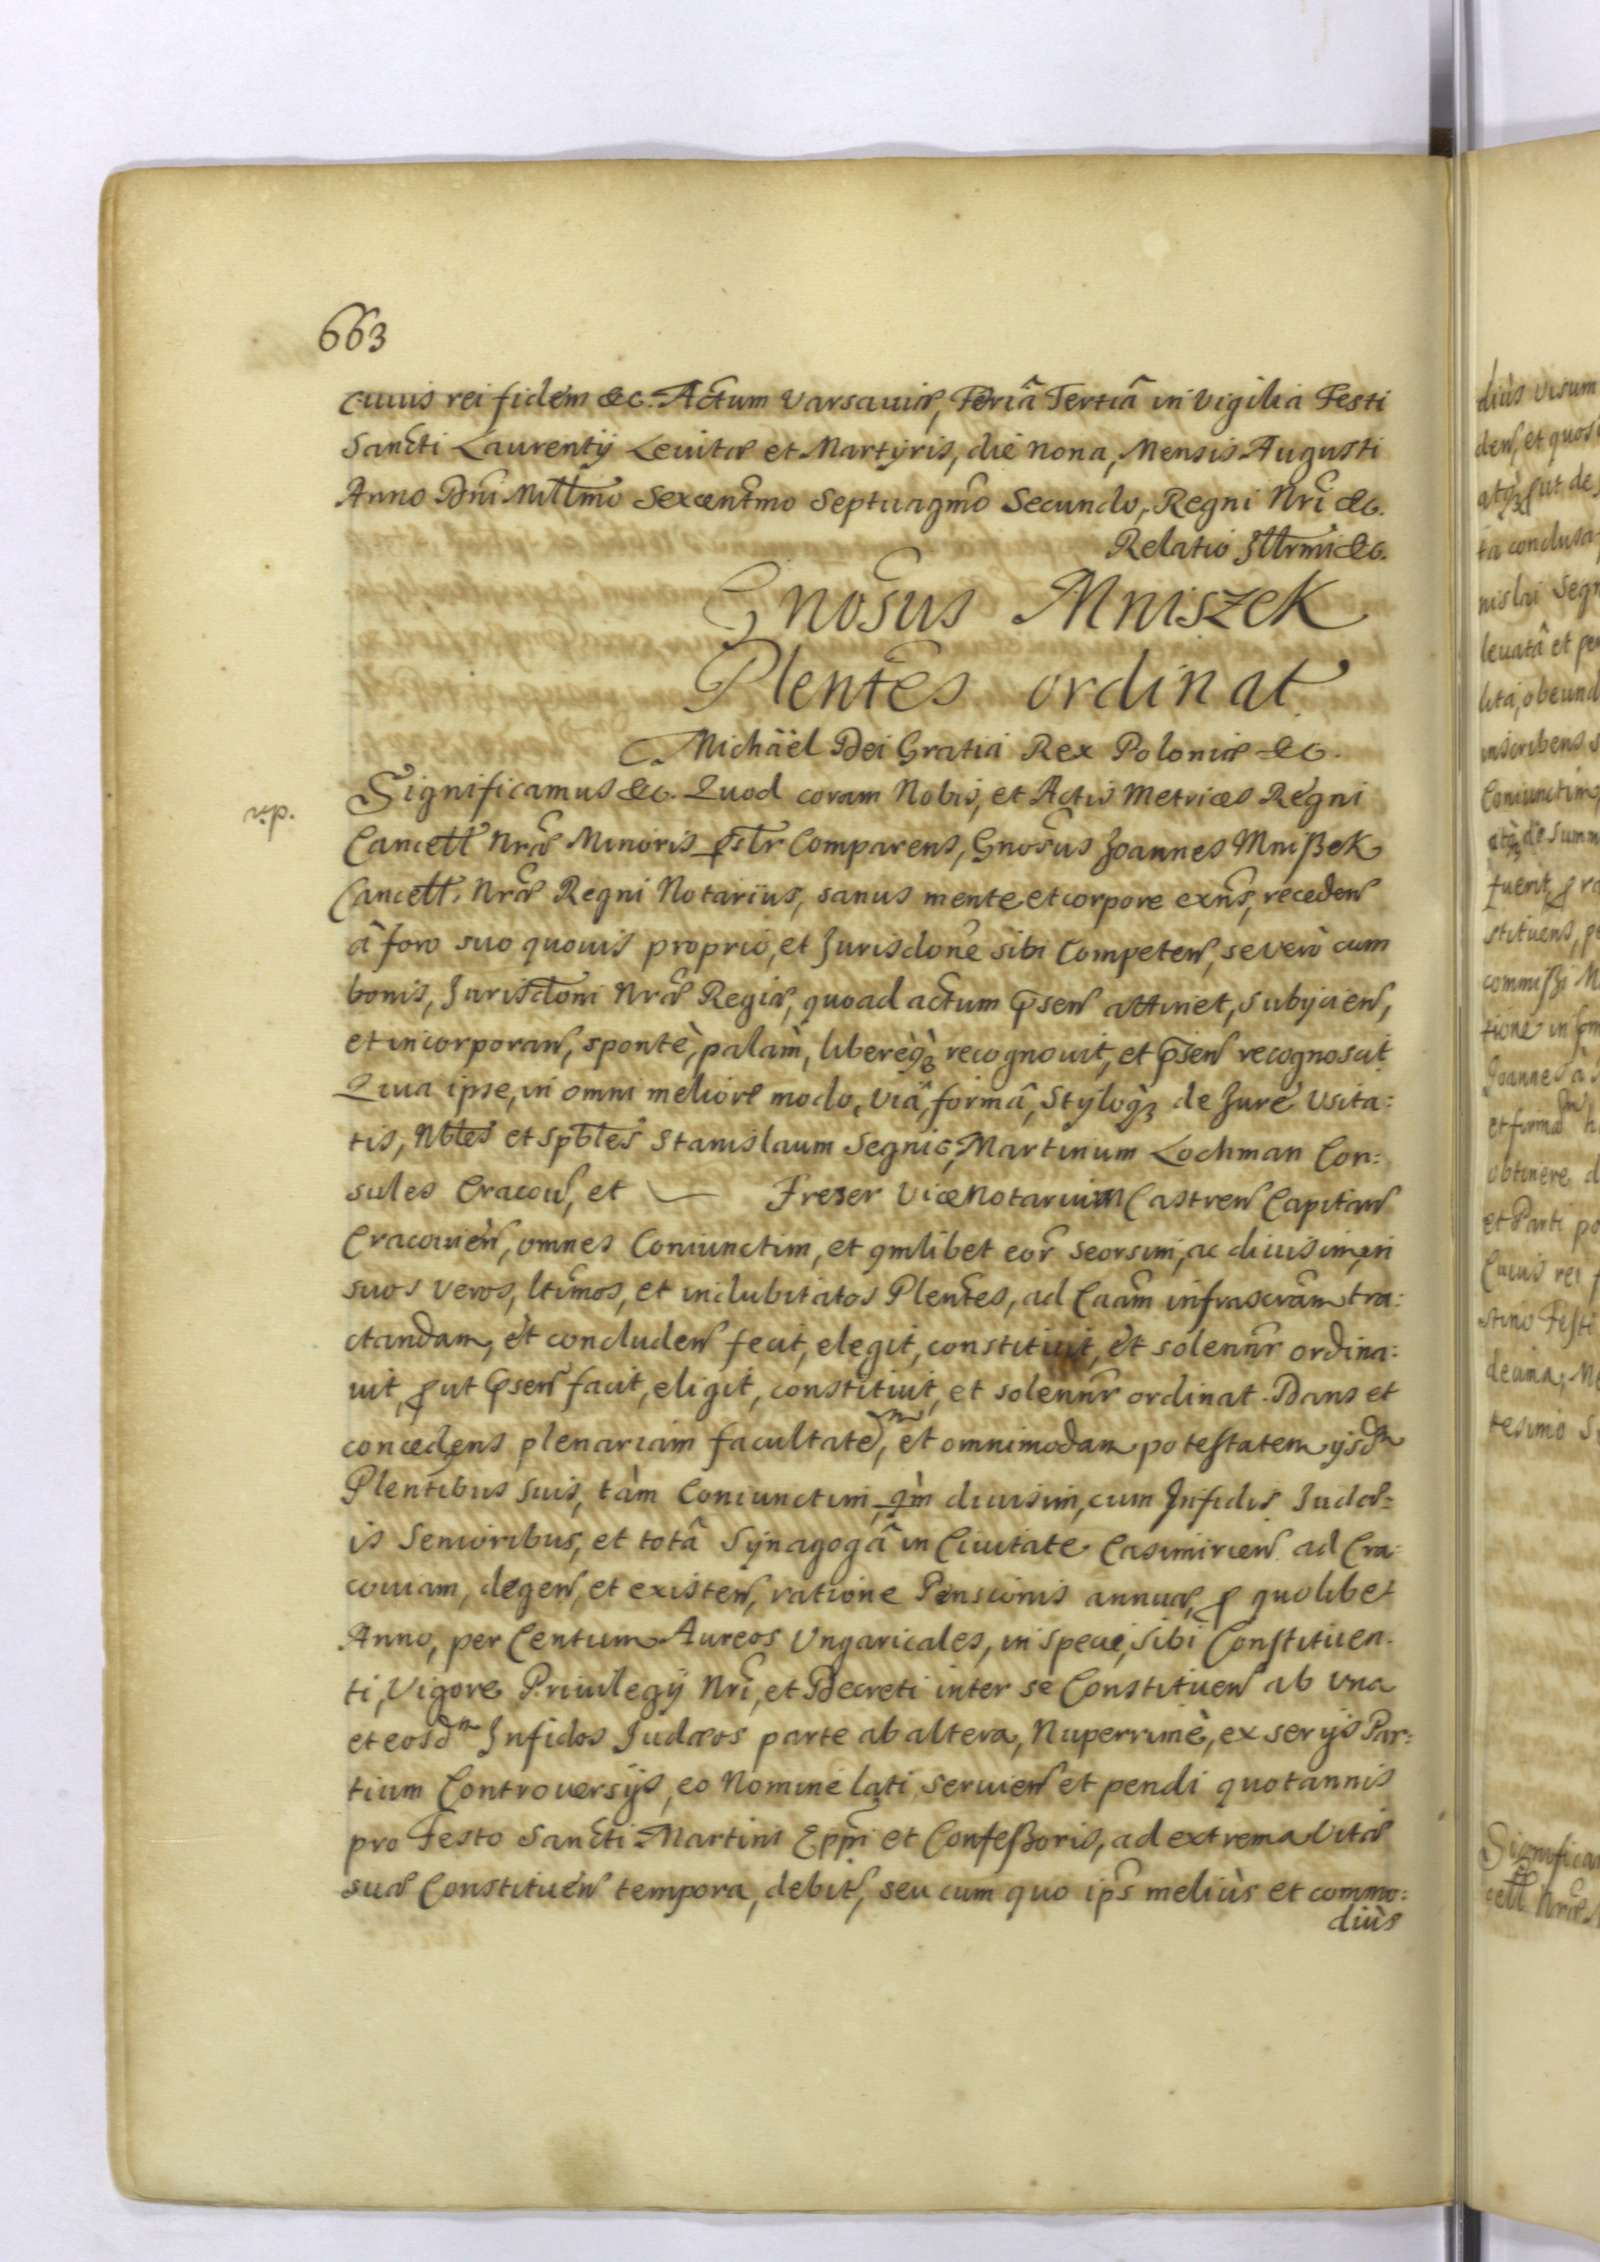 663
cuius rei fidem &c. Actum Varsaviæ, Feriâ Tertiâ in Vigilia Festi
Sancti Laurentij Levitæ et Martyris, die nona, Mensis Augusti
Anno Dni Millmo Sexcentmo Septuagmo Secundo, Regni Nri &c.
Relatio Illrmi &c.
Gnosus Mniszek
Plentes ordinat
Michäel Dei Gratia Rex Poloniæ &c.
Significamus &c. Quod coram Nobis, et Actis Metrices Regni
r.p.
Cancell Nræ Minoris pslr Comparens, Gnosus Joannes Mnißek
Cancell. Nræ Regni Notarius, sanus mente et corpore exns, receden
à foro suo quovis proprio, et Jurisdone sibi Competen, se verò cum
bonis, Jurisdtoni Nræ Regiæ, quoad actum psen attinet, subijcien,
et incorporan, spontè, palàm, liberèq3 recognovit, et psen recognoscit
Quia ipse, in omni meliore modo, viâ, formâ, styloq3 de Jure Usita:
tis, Nbles et Spbles Stanislaum Segnic, Martinum Lochman Con:
sules Cracou, et Frezer ViceNotarium Castren Capitan
Cracovien, omnes Coniunctim, et qmlibet eor seorsim, ac divisim, in
suos veros, ltimos, et indubitatos Plentes, ad Caam infrascram tra:
ctandam, et concluden fecit, elegit, constituit, et solennr ordina:
vit, put psen facit, eligit, constituit, et solennr ordinat. Dans et
concedens plenariam facultatem, et omnimodam potestatem ijsdm
Plentibus suis, tàm Coniunctim, qm divisim, cum Infidis Judæ:
is Senioribus, et totâ Synagogâ in Civitate Casimirien ad Cra:
coviam, degen, et existen, ratione Pensionis annuæ, p quolibet
Anno, per Centum Aureos Ungaricales, in specie, sibi Constituen:
ti, Vigore Privilegij Nri, et Decreti inter se Constituen ab una
et eosdm Infidos Judæos parte ab altera, Nuperrimè, ex serijs Par:
tium Controversijs, eo Nomine lati, servien et pendi quotannis
pro Festo Sancti Martini Eppi et Confeßoris, ad extrema Vitæ
suæ Constituen tempora, debit, seu cum quo ips meliùs et commo:
diùs